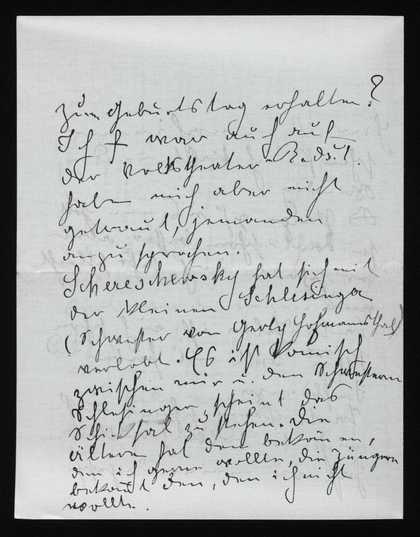 zum Geburtstag erhalten?
Ich war auch auf
der Volkstheater-Redout.
habe mich aber nicht
getraut, jemanden
anzusprechen.
Schereschewsky hat sich mit
der kleinen Schlesinger
(Schwester von Gerty Hofmannsthal)
verlobt. Es ist komisch
zwischen mir u. den Schwestern
Schlesinger scheint das
Schicksal zu stehen: die
ältere hat den bekomen,
den ich gerne wollte, die jüngere
bekomt den, den ich nicht
wollte.